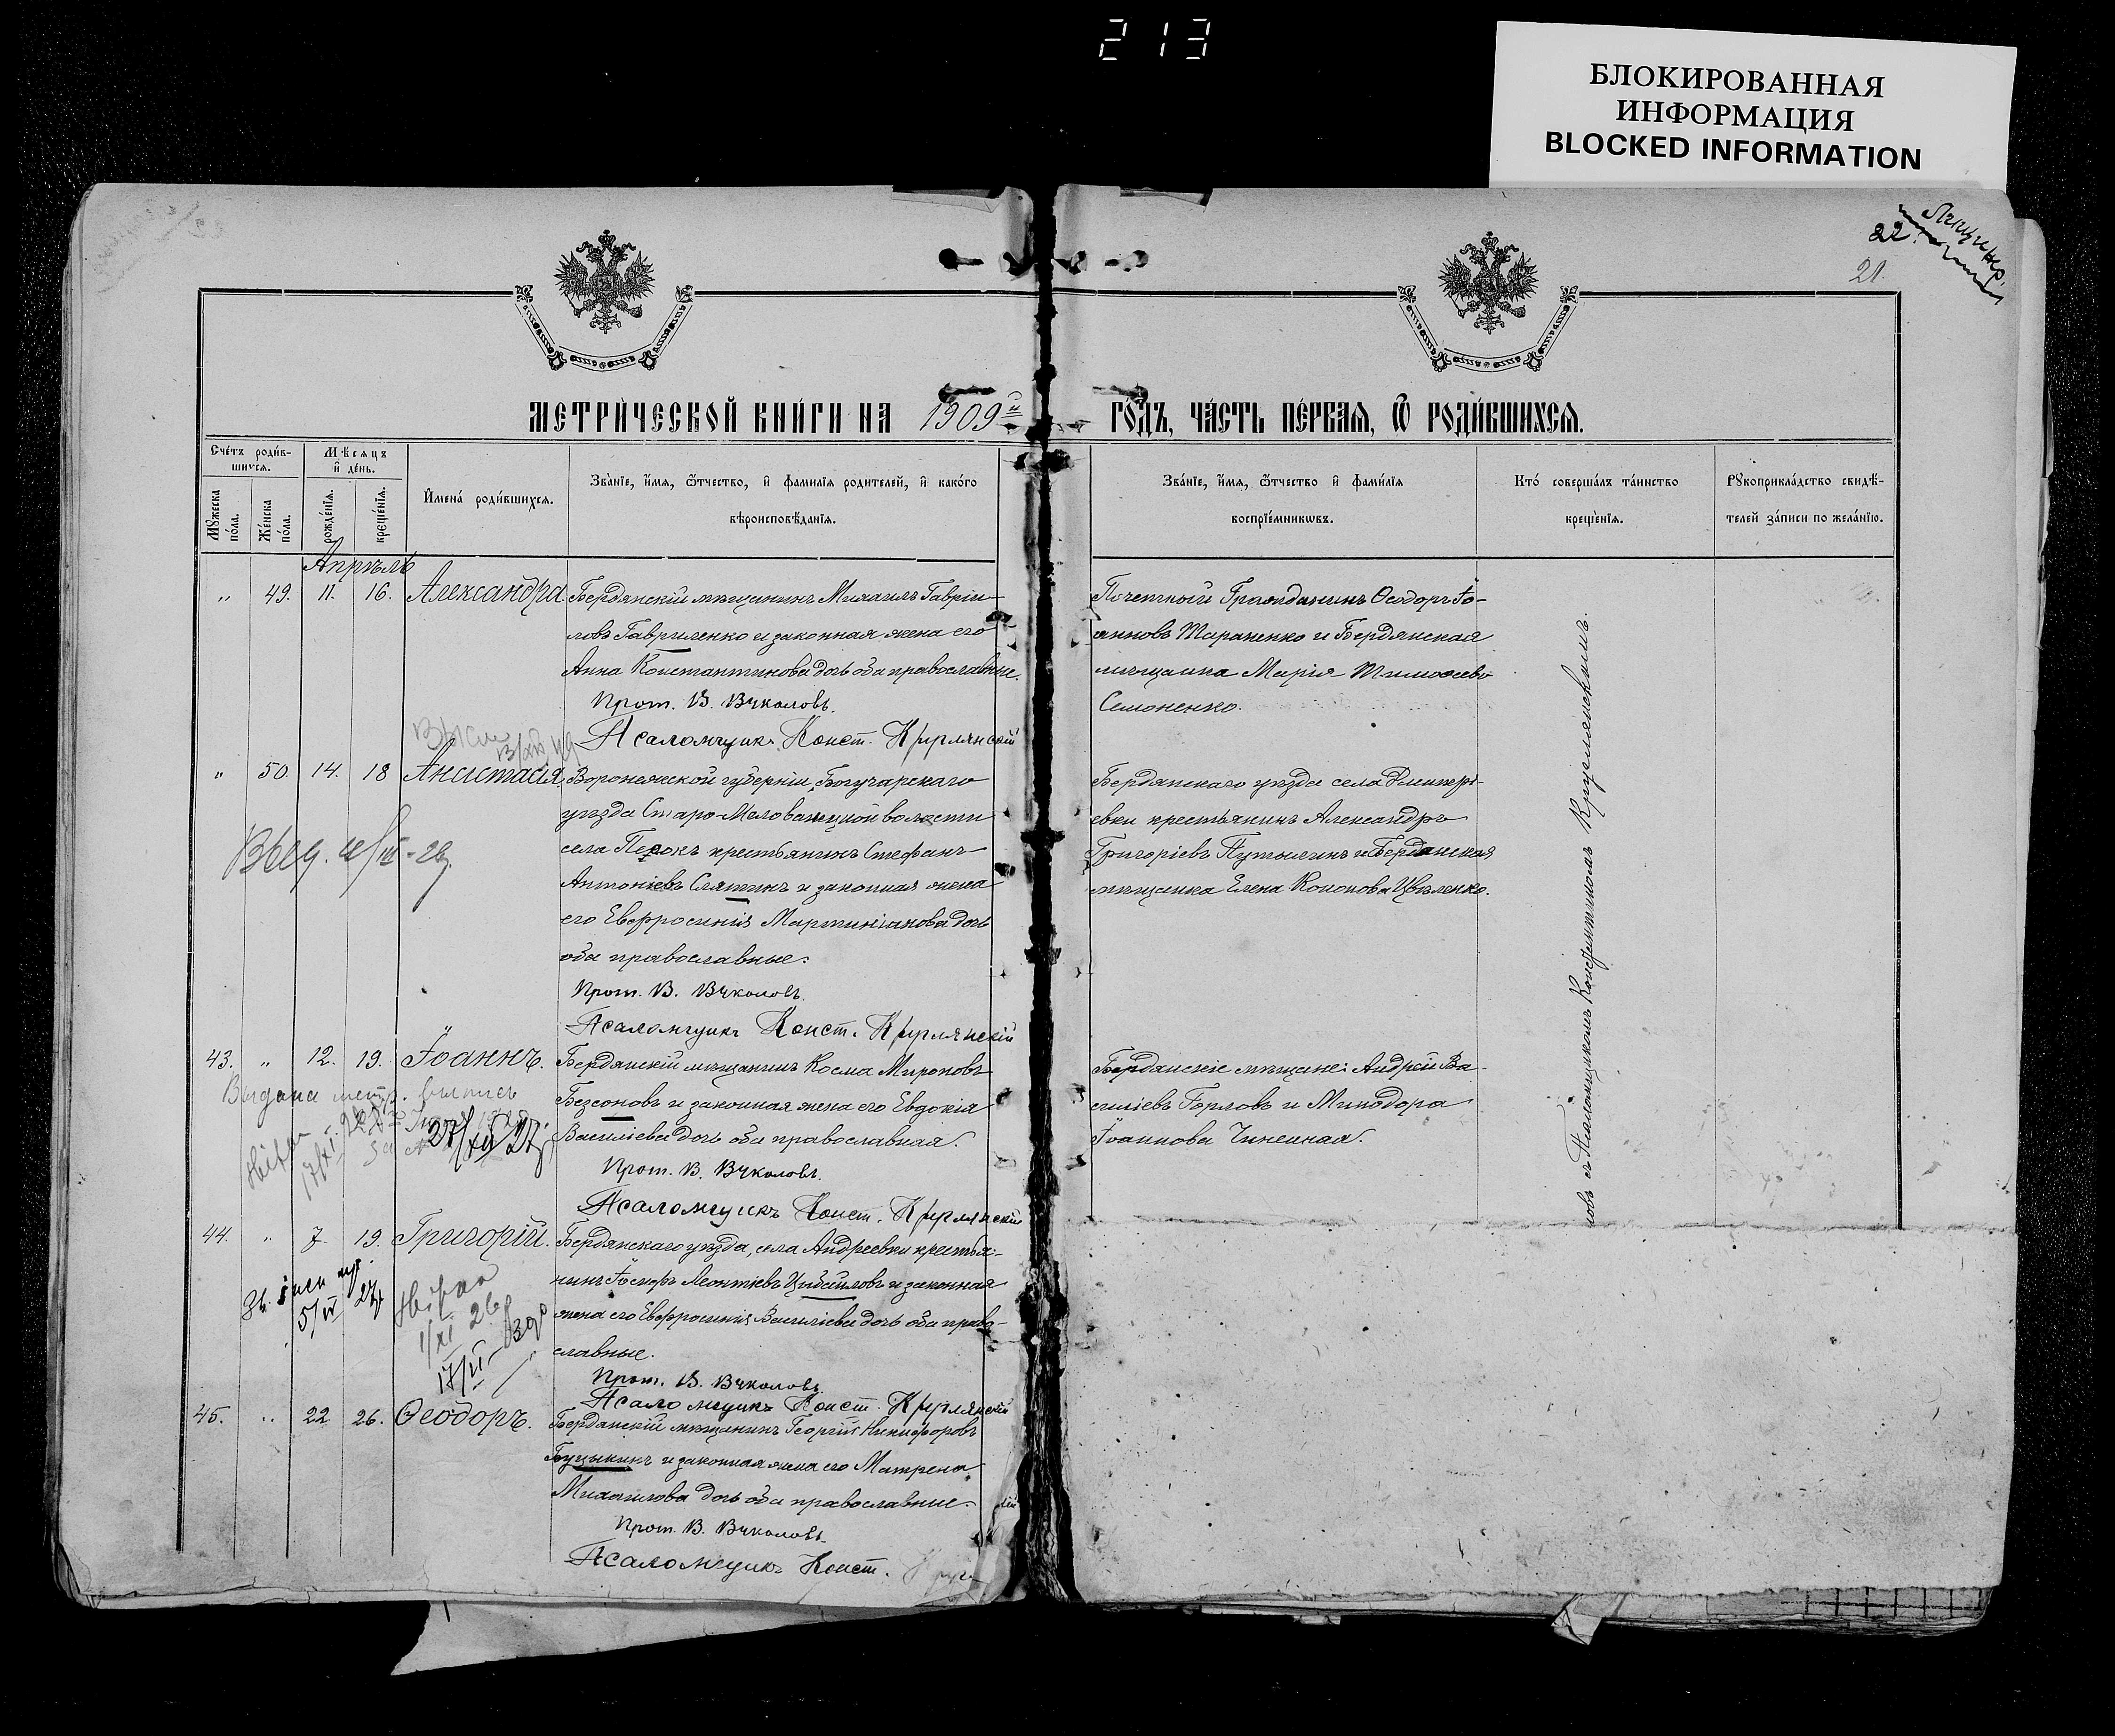 213
БЛОКИРОВАННАЯ
ИНФОРМАЦИЯ
BLOCKED INFORMATION
22.
21.
МЕТРИ́ЧЕСКОЙ КНИ́ГИ НА 1909й
ГО́ДЪ, ЧА́СТЬ ПЕ́РВАѦ, Ѿ РОДИ́ВШИХСѦ.
Сче́тъ роди́в-
шихся.
Мѣсяцъ
и҆ де́нь.
Мꙋжеска по́ла.
Же́нска по́ла.
рожде́нїѧ.
креще́нїѧ.
И҆мена́ роди́вшихся.
Зва́нїе, и҆́мѧ, ѻ҆́тчество, и҆ фамилїѧ родителей, и҆ како́го
вѣроисповѣ́данїѧ.
Зва́нїе, и҆́мѧ, ѻ҆́тчество и҆ фами́лїѧ
воспрїе́мникѡвъ.
Кто́ соверша́лъ та́инство
креще́нїѧ.
Рꙋкоприкла́дство свидѣ́-
телей за́писи по жела́нїю.
Апрѣль
" 49. 11. 16. Александра.
Бердянскій мѣщанинъ Михаилъ Гаврiи-
ловъ Гавриленко и законная жена его
Анна Константинова дочь оба православные.
Прот. В. Вуколовъ.
Псаломщикъ Конст.
Почетный Гражданинъ Ѳеодоръ Іо-
анновъ Тараненко и Бердянская
мѣщанка Марія Тимоѳеева
Семоненко.
" 50. 14. 18 Анастасія.
Воронежской губерніи, Богучарскаго
уѣзда Старо-Меловатской волости
села крестьянинъ Стефанъ
Антоніевъ Слятинъ и законная жена
его Евфросинія Мартиніанова дочь
оба православные.
Прот. В. Вуколовъ.
Псаломщикъ Конст.
Бердянскаго уѣзда села Димитрі-
евки крестьянинъ Александръ
Григоріевъ и Бердянская
мѣщанка Елена Кононова Цѣпленко.
43. " 12. 19. Іоаннъ.
Бердянскій мѣщанинъ Косма Мироновъ
Безсоновъ и законная жена его Евдокія
Василіева дочь оба православная.
Прот. В. Вуколовъ.
Псаломщикъ Конст.
Выдана метр. выпись
27/XII 27
Бердянскіе мѣщане: Андрей Ва-
силіевъ Горловъ и Минодора
Іоаннова
44. " 7 19. Григорій.
Бердянскаго уѣзда, села Андреевки крестья-
нинъ Іосифъ Леонтіевъ и законная
жена его Евфросинія Василіева дочь оба право-
славные.
Прот. В. Вуколовъ.
Псаломщикъ Конст.
5/IV 27
1/XI 26
45. " 22 26. Ѳеодоръ.
Бердянскій мѣщанинъ Георгій Никифоровъ
Буцыкинъ и законная жена его Матрена
Михаилова дочь оба православные.
Прот. В. Вуколовъ.
Псаломщикъ Конст.
съ Псаломщикомъ Константиномъ